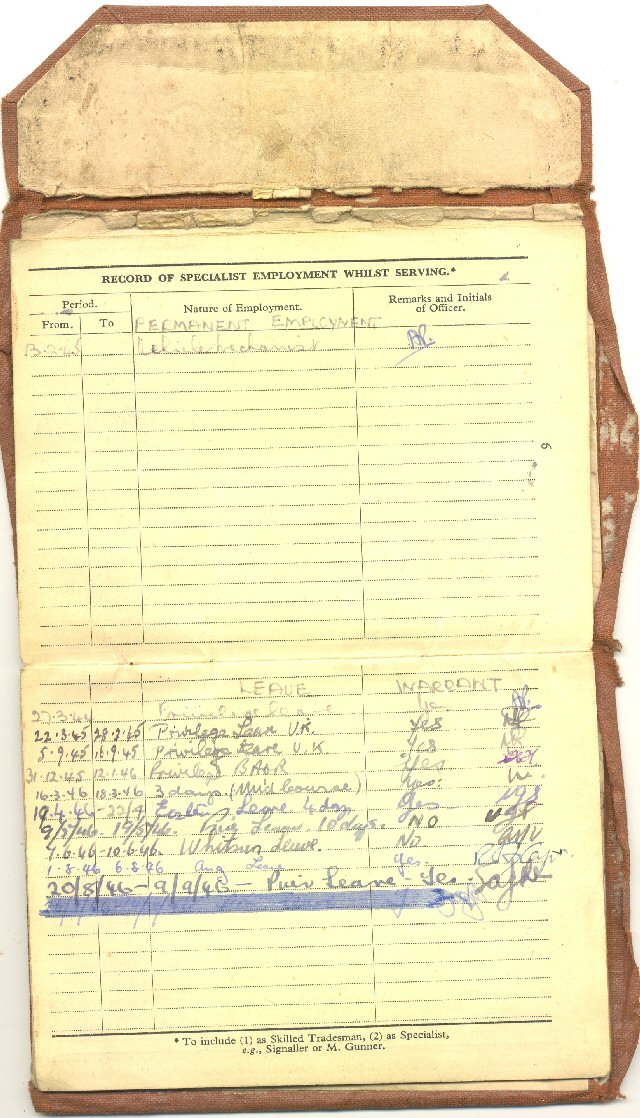 RECORD OF SPECIALIST EMPLOYMENT WHILST SERVING.*
Period. Nature of Employment. Remarks and Initials of Officer.
From. To PERMANENT EMPLOYMENT
Vehicle mechanist
9
LEAVE WARRANT
Privilege leave
22.3.45 28.3.45 Privilege Leave U.K. Yes
5.9.45 Privilege Leave U.K. Yes
31.12.45 12.1.46 Privilege BAOR Yes
16.3.46 18.3.46 3 days. (Mid Course) Yes.
19.4.46 - 22/4 Easter Leave 4 days Yes
9/5/46. 19/5/46. Priv Leave. 10 days. NO
7.6.46 - 10.6.46. Whitsun Leave. NO
1.8.46 6.8.46 Aug Leave Yes.
20/8/46 - 9/9/46 - Priv leave - Yes.
* To include (1) as Skilled Tradesman, (2) as Specialist,
e.g., Signaller or M. Gunner.